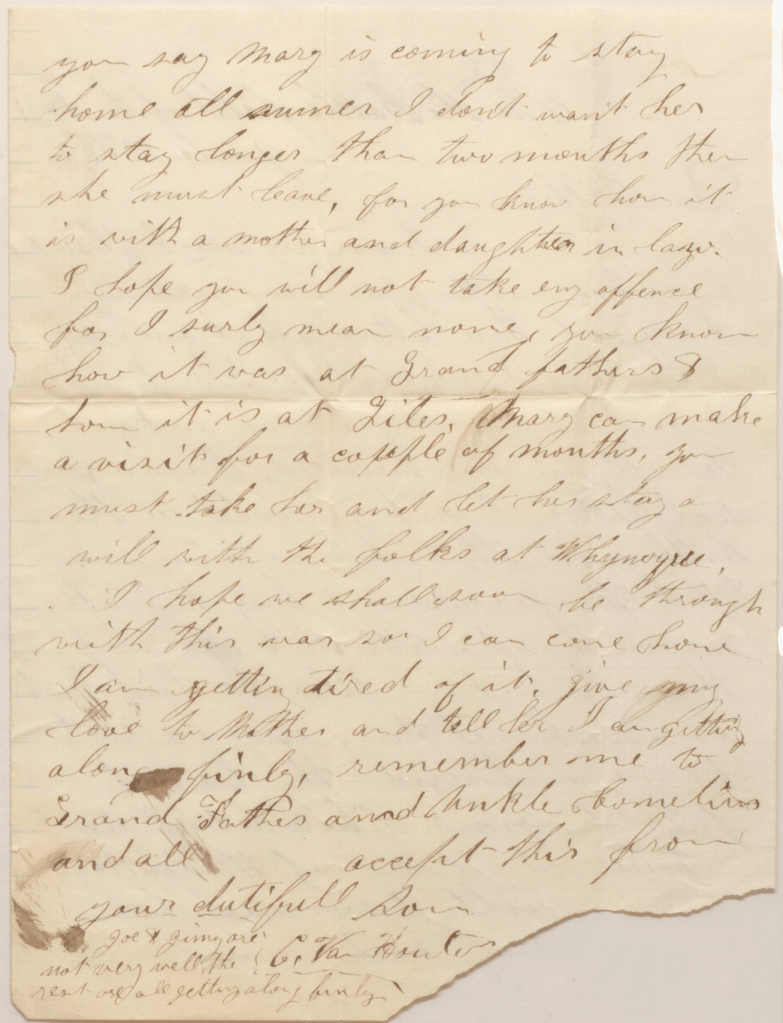 you say Mary is coming to stay
home all sumer I don't want her
to stay longer than two months then
she must leave, for you know how it
is with a mother and daughter in law.
I hope you will not take eny offence
for I surly mean none, you know
how it was at Grand fathers &
how it is at Giles. Mary can make
a visit for a copple of months, you
must take her and let her stay a
will with the folks at
I hope we shall soon be through
with this war so I can come home
I am gettin tired of it. give my
love to Mother and tell her I am getting
along finly, remember me to
Grand Father and Unkle Cornelius
and all accept this from
your dutifull Son
Joe & Jimy are C. Van Houten
not very well, the
rest are all getting along finly